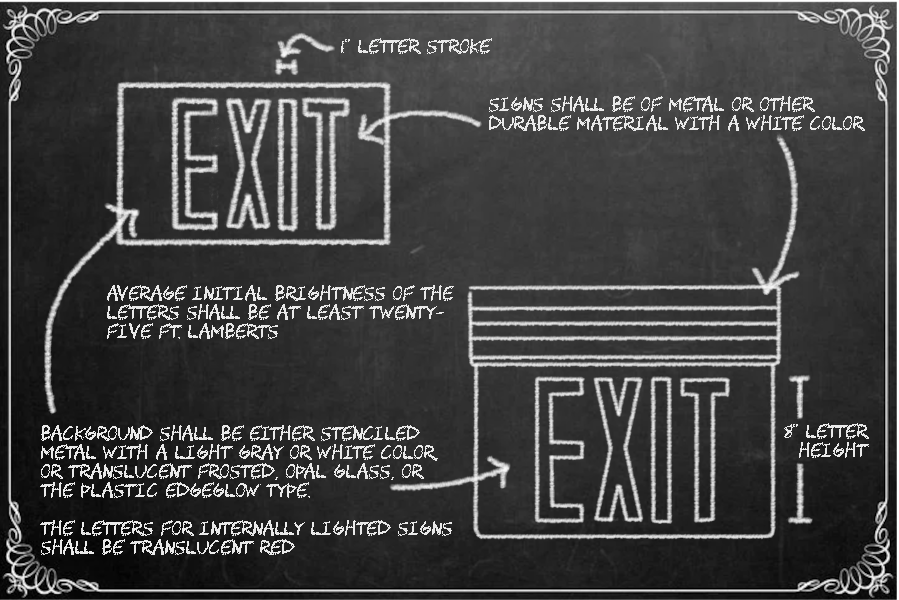 1" LETTER STROKE
EXIT
SIGNS SHALL BE OF METAL OR OTHER
DURABLE MATERIAL WITH A WHITE COLOR
AVERAGE INITIAL BRIGHTNESS OF THE
LETTERS SHALL BE AT LEAST TWENTY-
FIVE FT. LAMBERTS
EXIT
8" LETTER
HEIGHT
BACKGROUND SHALL BE EITHER STENCILED
METAL WITH A LIGHT GRAY OR WHITE COLOR
OR TRANSLUCENT FROSTED, OPAL GLASS, OR
THE PLASTIC EDGEGLOW TYPE.
THE LETTERS FOR INTERNALLY LIGHTED SIGNS
SHALL BE TRANSLUCENT RED